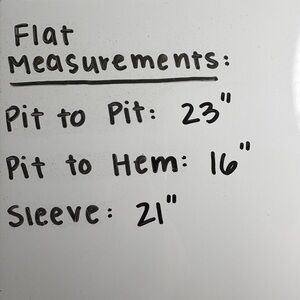 Flat
Measurements:
Pit to Pit: 23"
Pit to Hem: 16"
Sleeve: 21"